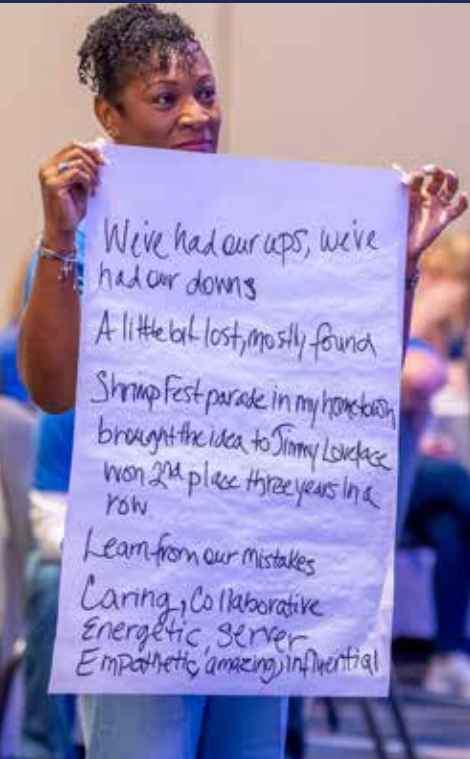 We've had our ups, we've
had our downs
A little bit lost, mostly found
Shrimp Fest parade in my hometown
brought the idea to Jimmy Lovelace
won 2nd place three years in a
row.
Learn from our mistakes
Caring, Collaborative
Energetic, server
Empathetic, amazing, influential